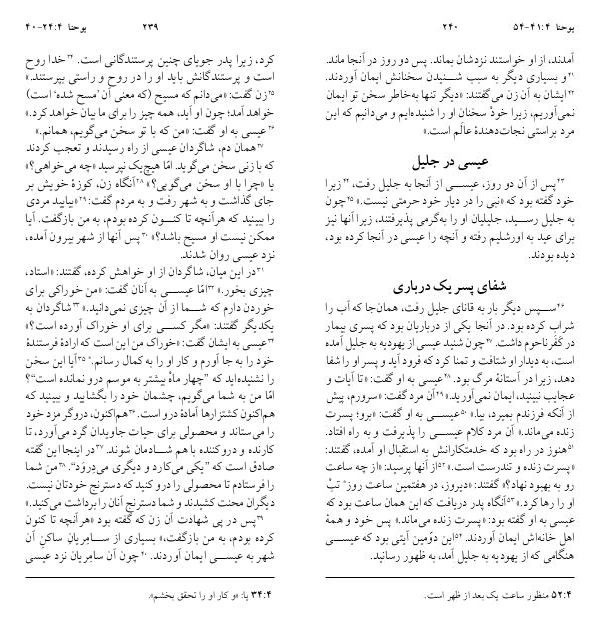 یوحنا ۴:‏۲۴-۴۰ ۲۳۹
کرد، زیرا پدر جویای چنین پرستندگانی است. ۲۴خدا روح
است و پرستندگانش باید او را در روح و راستی بپرستند.»
۲۵زن گفت: «می‌دانم که مسیح (که معنی آن ’مسح شده‘ است)
خواهد آمد؛ چون او آید، همه چیز را برای ما بیان خواهد کرد.»
۲۶عیسی به او گفت: «من که با تو سخن می‌گویم، همانم.»
۲۷همان دم، شاگردان عیسی از راه رسیدند و تعجب کردند
که با زنی سخن می‌گوید. امّا هیچ‌یک نپرسید «چه می‌خواهی؟»
یا «چرا با او سخن می‌گویی؟» ۲۸آنگاه زن، کوزهٔ خویش بر
جای گذاشت و به شهر رفت و به مردم گفت: ۲۹«بیایید مردی
را ببینید که هرآنچه تا کنون کرده بودم، به من بازگفت. آیا
ممکن نیست او مسیح باشد؟» ۳۰پس آنها از شهر بیرون آمده،
نزد عیسی روان شدند.
۳۱در این میان، شاگردان از او خواهش کرده، گفتند: «استاد،
چیزی بخور.» ۳۲امّا عیسی به آنان گفت: «من خوراکی برای
خوردن دارم که شما از آن چیزی نمی‌دانید.» ۳۳شاگردان به
یکدیگر گفتند: «مگر کسی برای او خوراک آورده است؟»
۳۴عیسی به ایشان گفت: «خوراک من این است که ارادهٔ فرستندهٔ
خود را به جا آورم و کار او را به کمال رسانم. ۳۵آیا این سخن
را نشنیده‌اید که ”چهار ماه بیشتر به موسم درو نمانده است“؟
امّا من به شما می‌گویم، چشمان خود را بگشایید و ببینید که
هم‌اکنون کشتزارها آمادهٔ درو است. ۳۶هم‌اکنون، دروگر مزد خود
را می‌ستاند و محصولی برای حیات جاویدان گرد می‌آورد، تا
کارنده و دروکننده با هم شادمان شوند. ۳۷در اینجا این گفته
صادق است که ”یکی می‌کارد و دیگری می‌دِرَوَد“. ۳۸من شما
را فرستادم تا محصولی را درو کنید که دسترنج خودتان نیست.
دیگران محنت کشیدند و شما دسترنج آنان را برداشت می‌کنید.»
۳۹پس در پی شهادت آن زن که گفته بود «هرآنچه تا کنون
کرده بودم، به من بازگفت»، بسیاری از سامریان ساکن آن
شهر به عیسی ایمان آوردند. ۴۰چون آن سامِریان نزد عیسی
۳۴:۴ یا: «و کار او را تحقق بخشم».
یوحنا ۴:‏۴۱-۵۴ ۲۴۰
آمدند، از او خواستند نزدشان بماند. پس دو روز در آنجا ماند.
۴۱و بسیاری دیگر به سبب شنیدن سخنانش ایمان آوردند.
۴۲ایشان به آن زن می‌گفتند: «دیگر تنها به‌خاطر سخن تو ایمان
نمی‌آوریم، زیرا خودْ سخنان او را شنیده‌ایم و می‌دانیم که این
مرد براستی نجات‌دهندهٔ عالم است.»
عیسی در جلیل
۴۳پس از آن دو روز، عیسی از آنجا به جلیل رفت، ۴۴زیرا
خود گفته بود که «نبی را در دیار خود حرمتی نیست.» ۴۵چون
به جلیل رسید، جلیلیان او را به‌گرمی پذیرفتند، زیرا آنها نیز
برای عید به اورشلیم رفته و آنچه را عیسی در آنجا کرده بود،
دیده بودند.
شفای پسر یک درباری
۴۶سپس دیگر بار به قانای جلیل رفت، همان‌جا که آب را
شراب کرده بود. در آنجا یکی از درباریان بود که پسری بیمار
در کَفَرناحوم داشت. ۴۷چون شنید عیسی از یهودیه به جلیل آمده
است، به دیدار او شتافت و تمنا کرد که فرود آید و پسر او را شفا
دهد، زیرا در آستانهٔ مرگ بود. ۴۸عیسی به او گفت: «تا آیات و
عجایب نبینید، ایمان نمی‌آورید.» ۴۹آن مرد گفت: «سرورم، پیش
از آنکه فرزندم بمیرد، بیا.» ۵۰عیسی به او گفت: «برو؛ پسرت
زنده می‌ماند.» آن مرد کلام عیسی را پذیرفت و به راه افتاد.
۵۱هنوز در راه بود که خدمتکارانش به استقبال او آمده، گفتند:
«پسرت زنده و تندرست است.» ۵۲از آنها پرسید: «از چه ساعت
رو به بهبود نهاد؟» گفتند: «دیروز، در هفتمین ساعت روز تبْ
او را رها کرد.» ۵۳آنگاه پدر دریافت که این همان ساعت بود که
عیسی به او گفته بود: «پسرت زنده می‌ماند.» پس خود و همهٔ
اهل خانه‌اش ایمان آوردند. ۵۴این دوّمین آیتی بود که عیسی
هنگامی که از یهودیه به جلیل آمد، به ظهور رسانید.
۵۲:۴ منظور ساعت یک بعد از ظهر است.